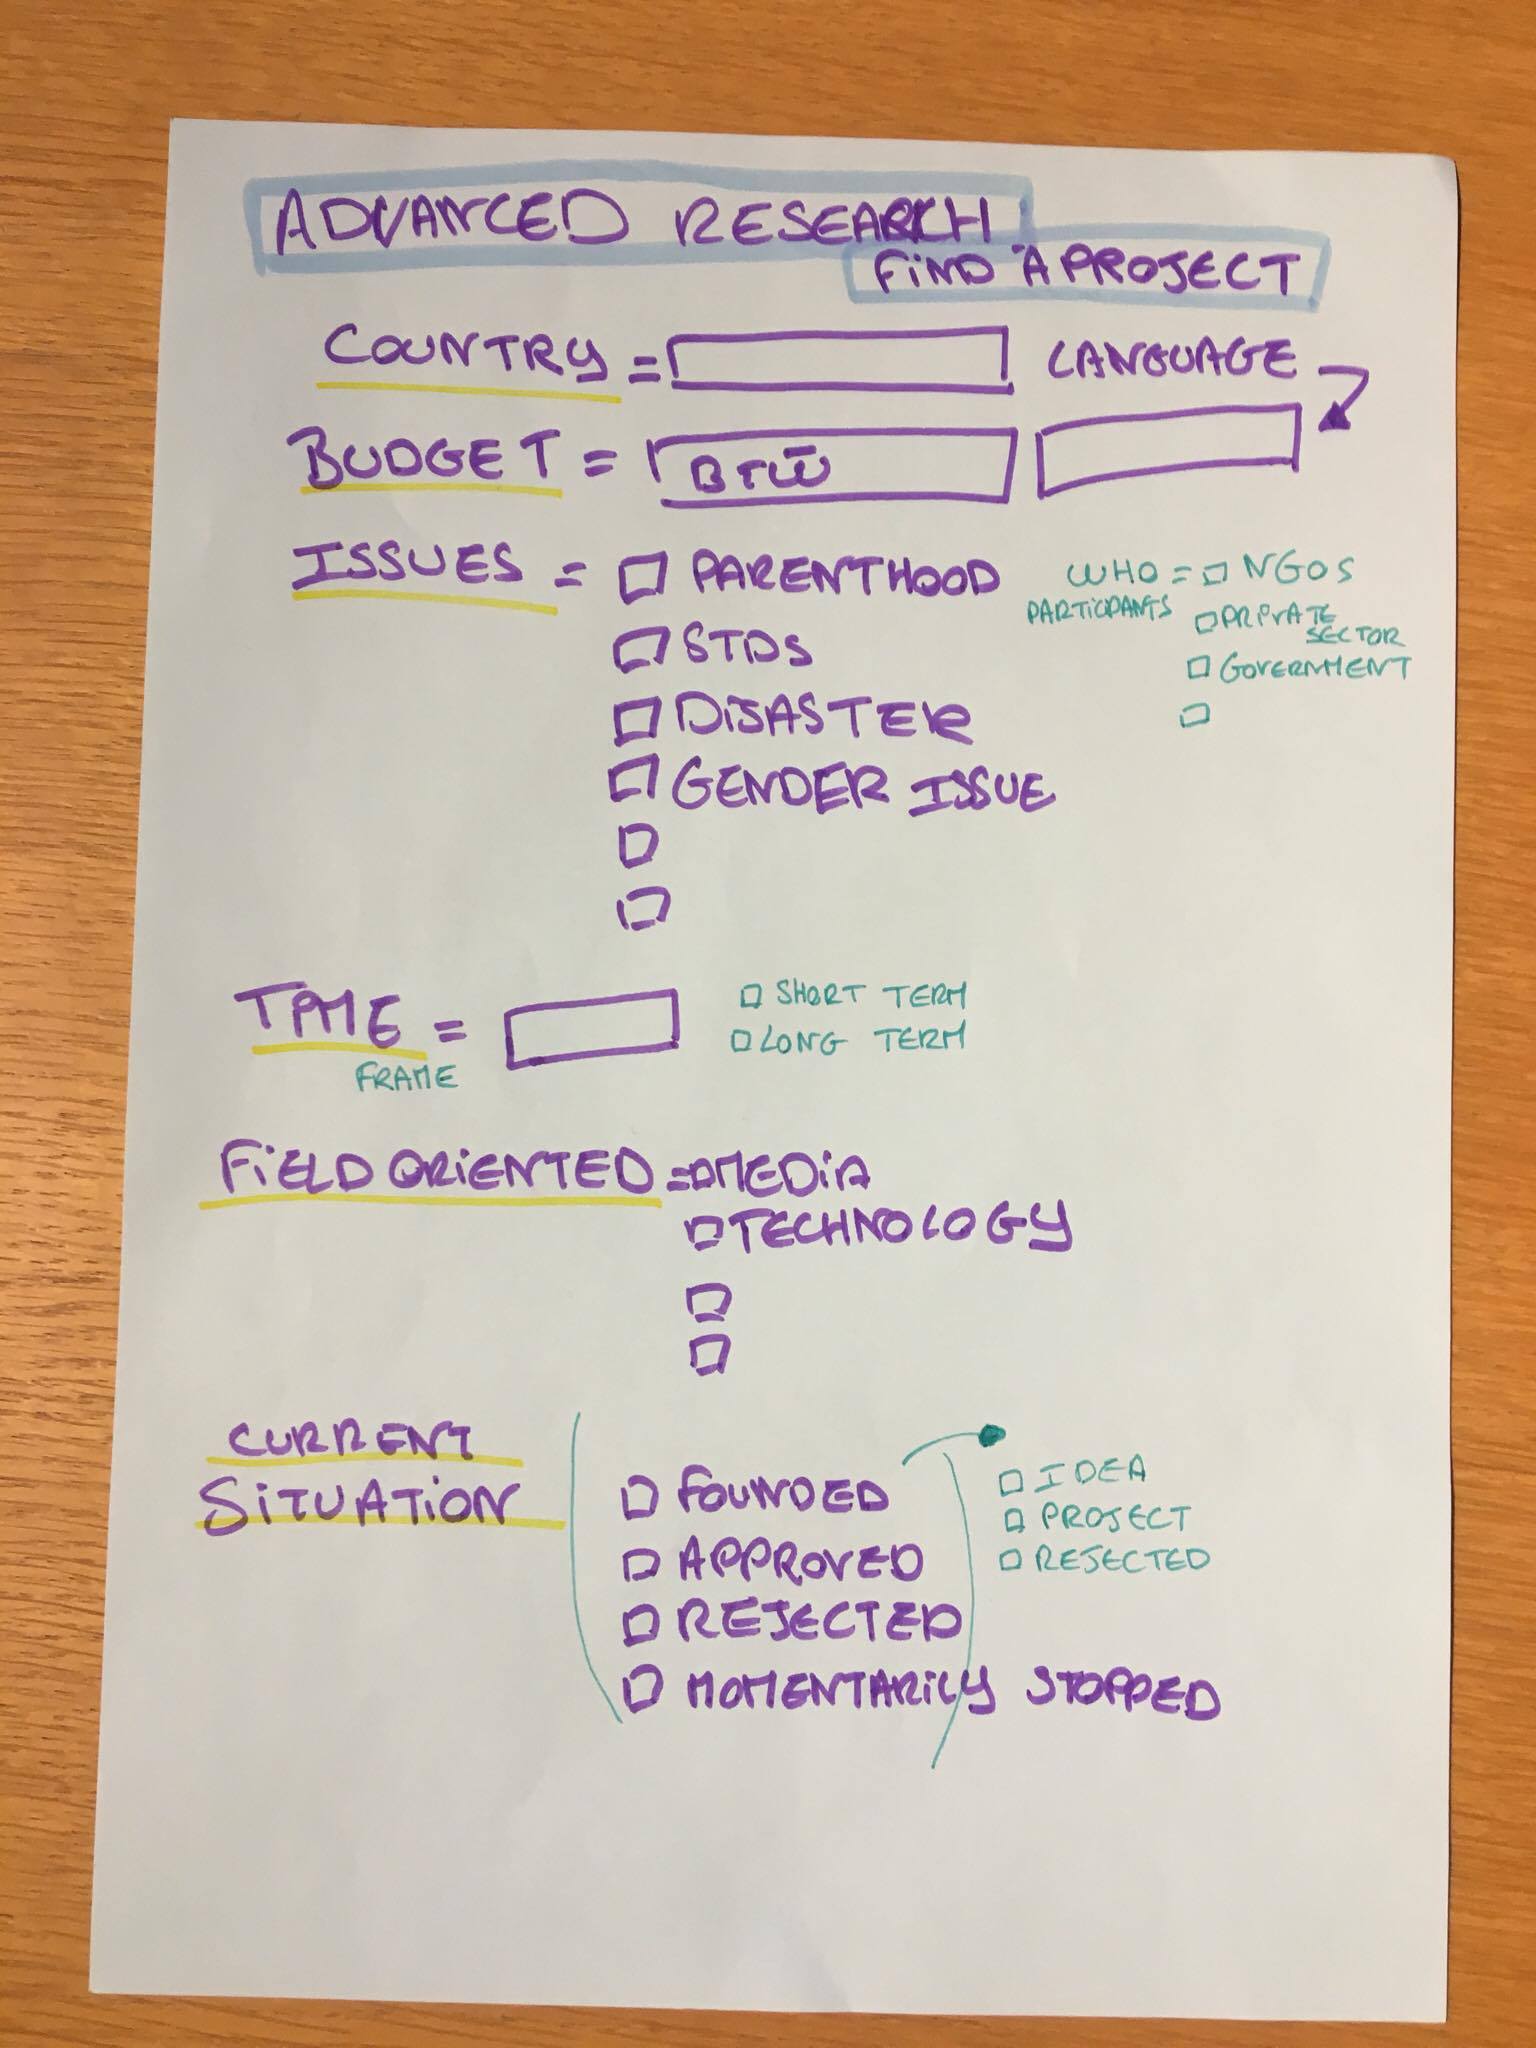 ADVANCED RESEARCH
FIND A PROJECT
COUNTRY =
LANGUAGE
BUDGET = BTW
ISSUES = PARENTHOOD
STDS
DISASTER
GENDER ISSUE
WHO = NGOS
PARTICIPANTS
PRIVATE
SECTOR
GOVERNMENT
TIME =
FRAME
SHORT TERM
LONG TERM
FIELD ORIENTED = MEDIA
TECHNOLOGY
CURRENT
SITUATION
FOUNDED
APPROVED
REJECTED
MOMENTARILY STOPPED
IDEA
PROJECT
REJECTED